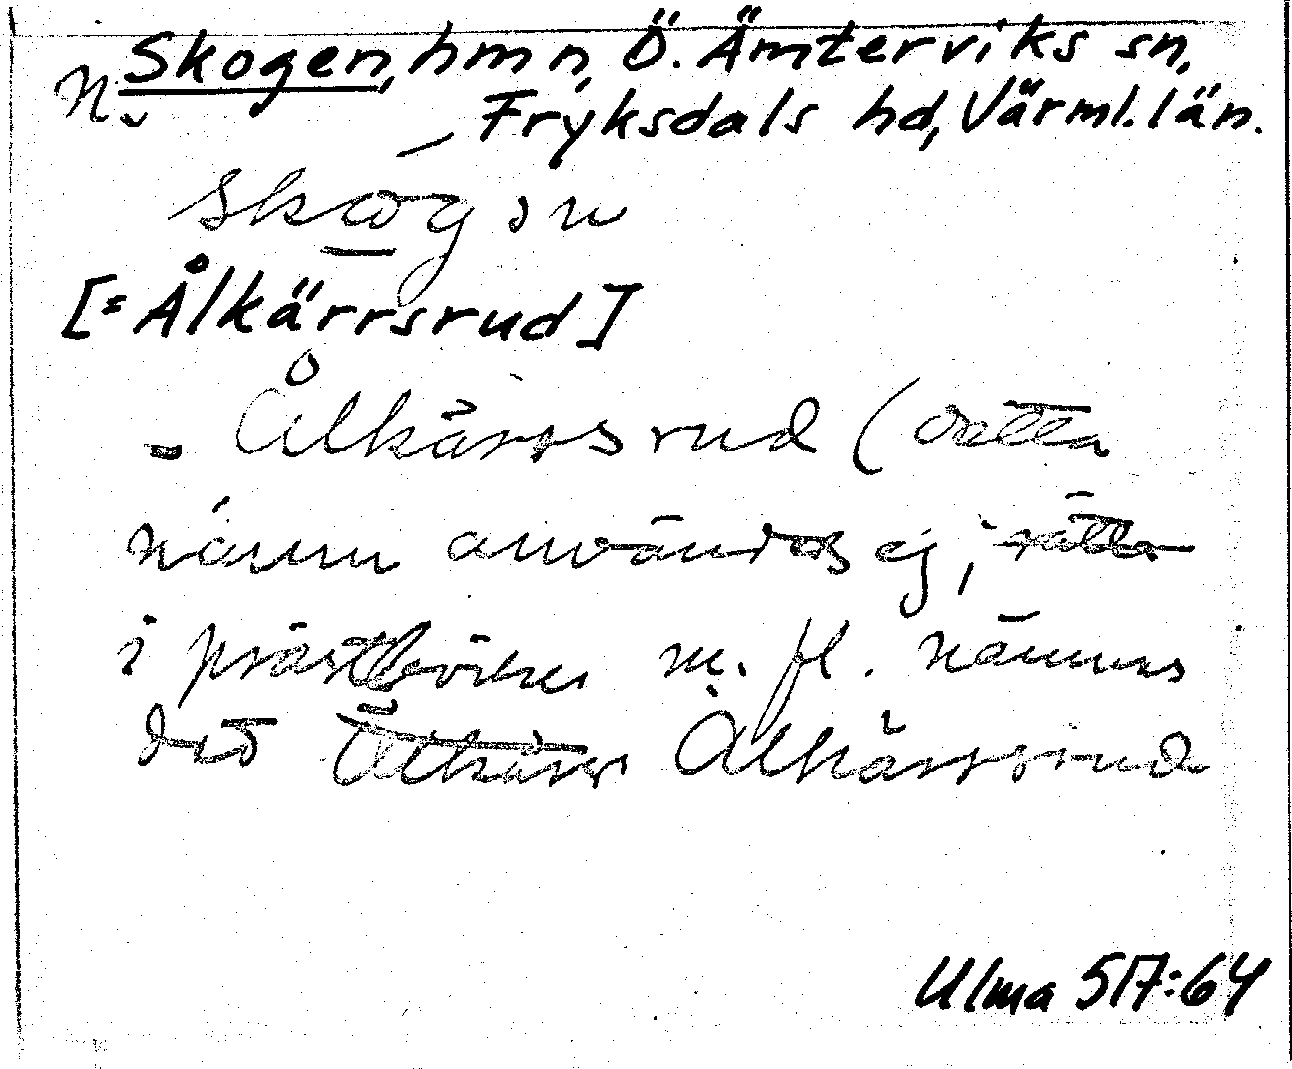 Skogen, hmn, Ö. Ämterviks sn,
N. Fryksdals hd, Värml. län.
skωgən
[= Ålkärrsrud]
= Ålkärrsrud (detta
namn användes ej; rätta
i prästböcker m. fl. nämnes
det Ålkärr Ålkärrsrud
Ulma 517:64